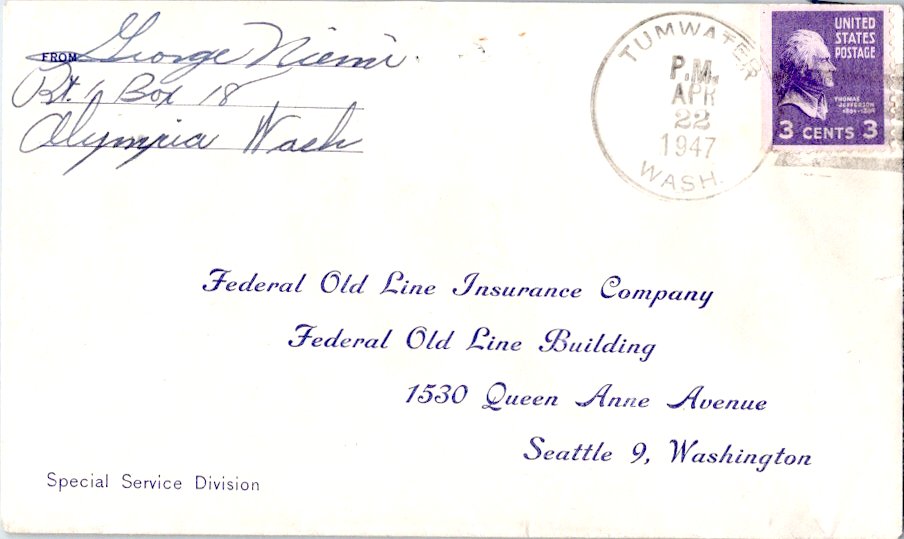 FROM George Niemi
Rt. 1 Box 18
Olympia Wash
TUMWATER
P.M.
APR
22
1947
WASH.
UNITED
STATES
POSTAGE
THOMAS
JEFFERSON
1801-1809
3 CENTS 3
Federal Old Line Insurance Company
Federal Old Line Building
1530 Queen Anne Avenue
Seattle 9, Washington
Special Service Division